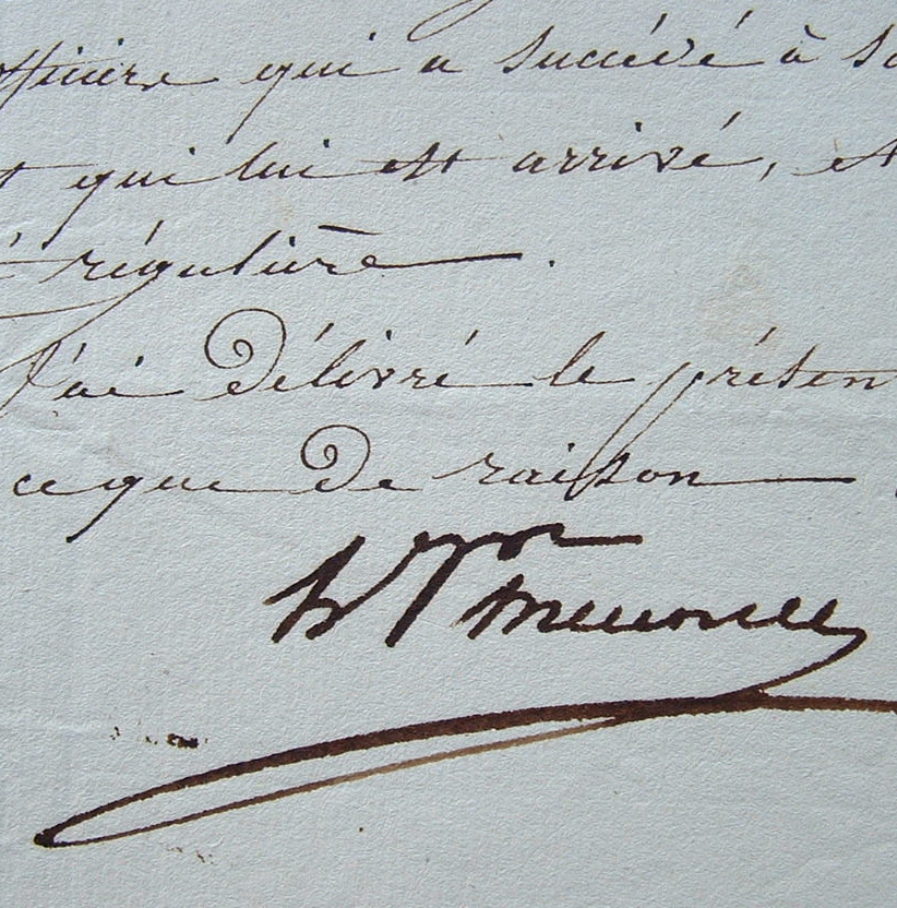 officier qui a succédé à sa
t qui lui est arrivé, et
é régulière.
J'ai délivré le présent
ce que de raison